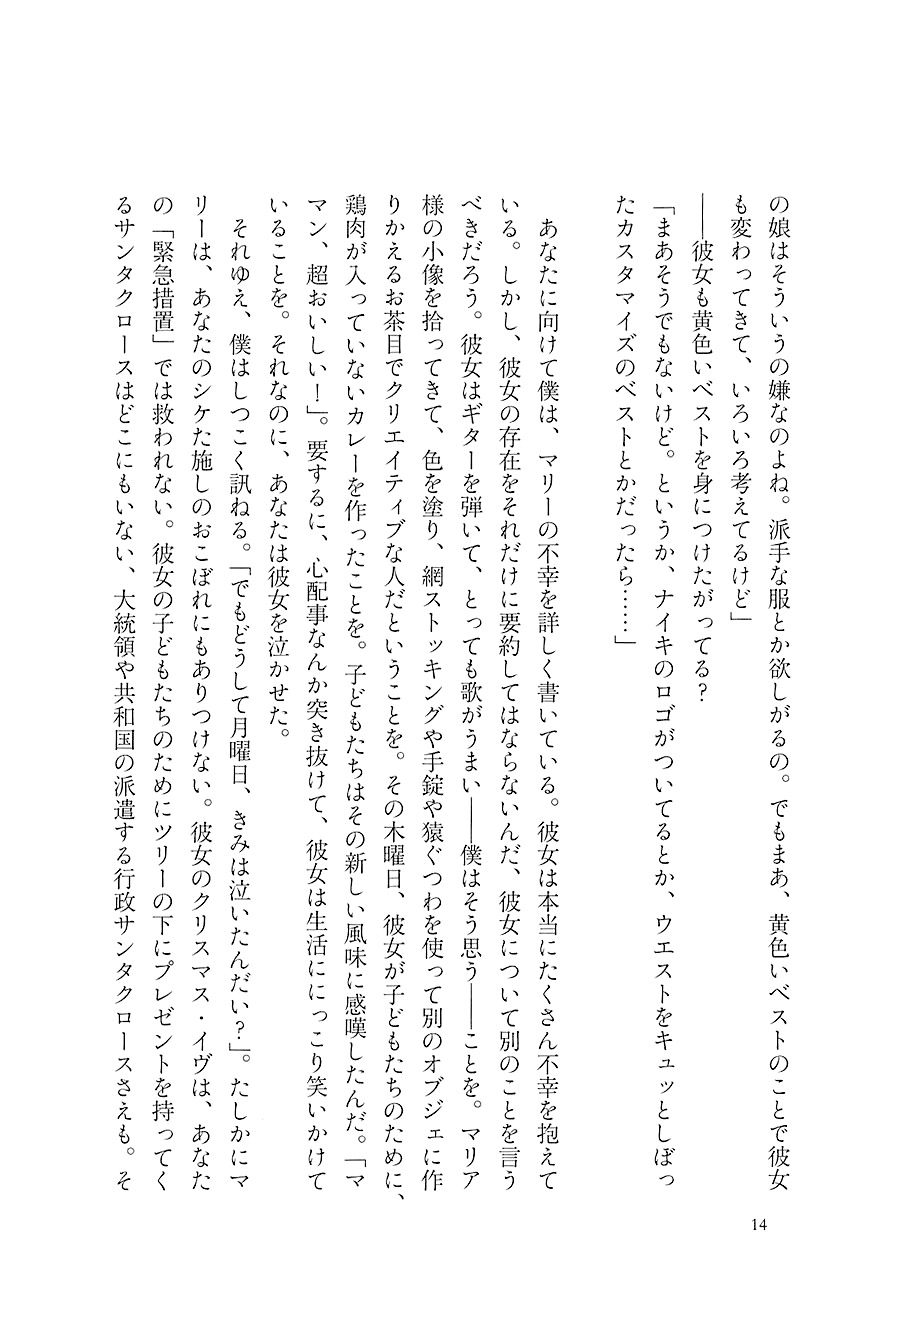 の娘はそういうの嫌なのよね。派手な服とか欲しがるの。でもまあ、黄色いベストのことで彼女
も変わってきて、いろいろ考えてるけど」
――彼女も黄色いベストを身につけたがってる？
「まあそうでもないけど。というか、ナイキのロゴがついてるとか、ウエストをキュッとしぼっ
たカスタマイズのベストとかだったら……」
あなたに向けて僕は、マリーの不幸を詳しく書いている。彼女は本当にたくさん不幸を抱えて
いる。しかし、彼女の存在をそれだけに要約してはならないんだ、彼女について別のことを言う
べきだろう。彼女はギターを弾いて、とっても歌がうまい――僕はそう思う――ことを。マリア
様の小像を拾ってきて、色を塗り、網ストッキングや手錠や猿ぐつわを使って別のオブジェに作
りかえるお茶目でクリエイティブな人だということを。その木曜日、彼女が子どもたちのために、
鶏肉が入っていないカレーを作ったことを。子どもたちはその新しい風味に感嘆したんだ。「マ
マン、超おいしい！」。要するに、心配事なんか突き抜けて、彼女は生活ににっこり笑いかけて
いることを。それなのに、あなたは彼女を泣かせた。
それゆえ、僕はしつこく訊ねる。「でもどうして月曜日、きみは泣いたんだい？」。たしかにマ
リーは、あなたのシケた施しのおこぼれにもありつけない。彼女のクリスマス・イヴは、あなた
の「緊急措置」では救われない。彼女の子どもたちのためにツリーの下にプレゼントを持ってく
るサンタクロースはどこにもいない、大統領や共和国の派遣する行政サンタクロースさえも。そ
14